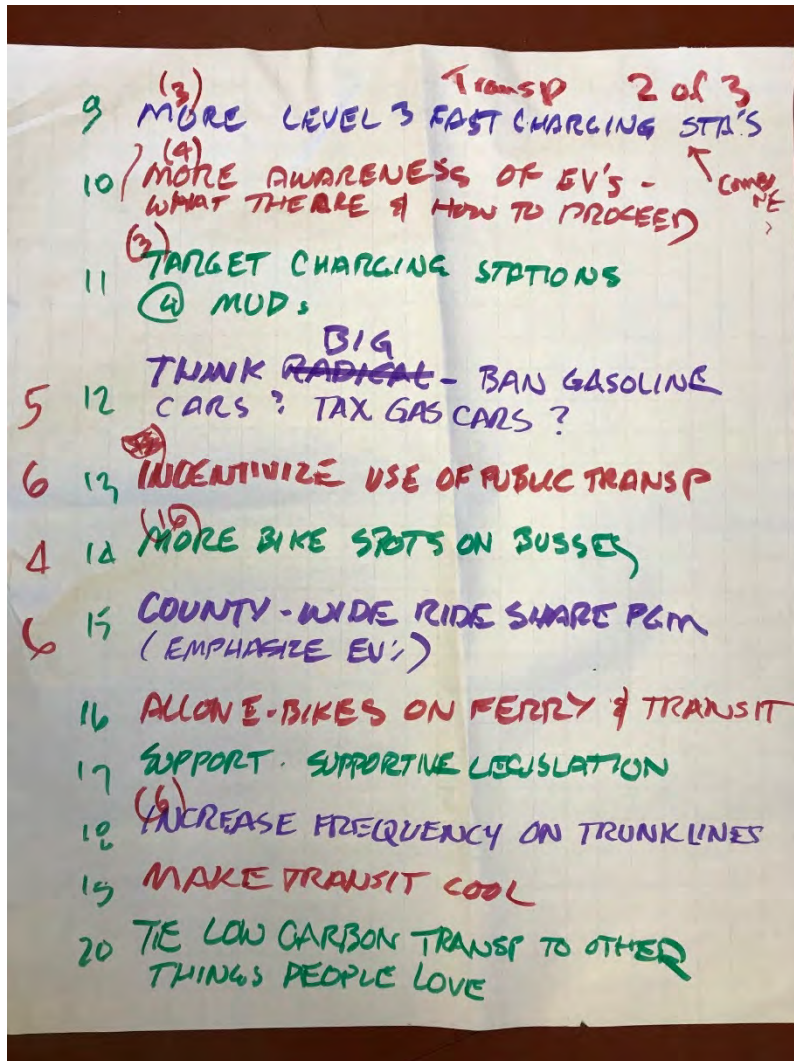 Transp 2 of 3
(3)
9 MORE LEVEL 3 FAST CHARGING STA'S
(4)
10 MORE AWARENESS OF EV'S -
WHAT THEARE & HOW TO PROCEED
(3)
11 TARGET CHARGING STATIONS
@ MUDs
BIG
12 THINK RADICAL - BAN GASOLINE
5 CARS? TAX GAS CARS?
6 13 INDENTIVIZE USE OF PUBLIC TRANSP
4 14 MORE BIKE SPOTS ON BUSSES
6 15 COUNTY-WIDE RIDE SHARE PGM
(EMPHASIZE EV's)
16 ALLOW E-BIKES ON FERRY & TRANSIT
17 SUPPORT SUPPORTIVE LEGISLATION
(6)
18 INCREASE FREQUENCY ON TRUNK LINES
19 MAKE TRANSIT COOL
20 TIE LOW CARBON TRANSP TO OTHER
THINGS PEOPLE LOVE